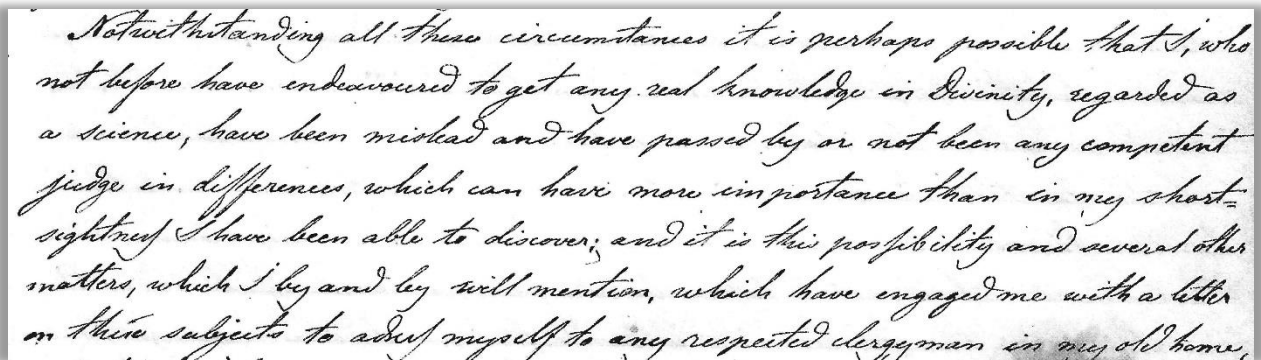 Notwithstanding all these circumstances it is perhaps possible that I, who
not before have endeavoured to get any real knowledge in Divinity, regarded as
a science, have been mislead and have passed by or not been any competent
judge in differences, which can have more importance than in my short=
sightness I have been able to discover; and it is this possibility and several other
matters, which I by and by will mention, which have engaged me with a letter
on these subjects to myself to any respected clergyman in my old home,